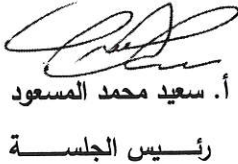 أ. سعيد محمد المسعود
رئيس الجلسة